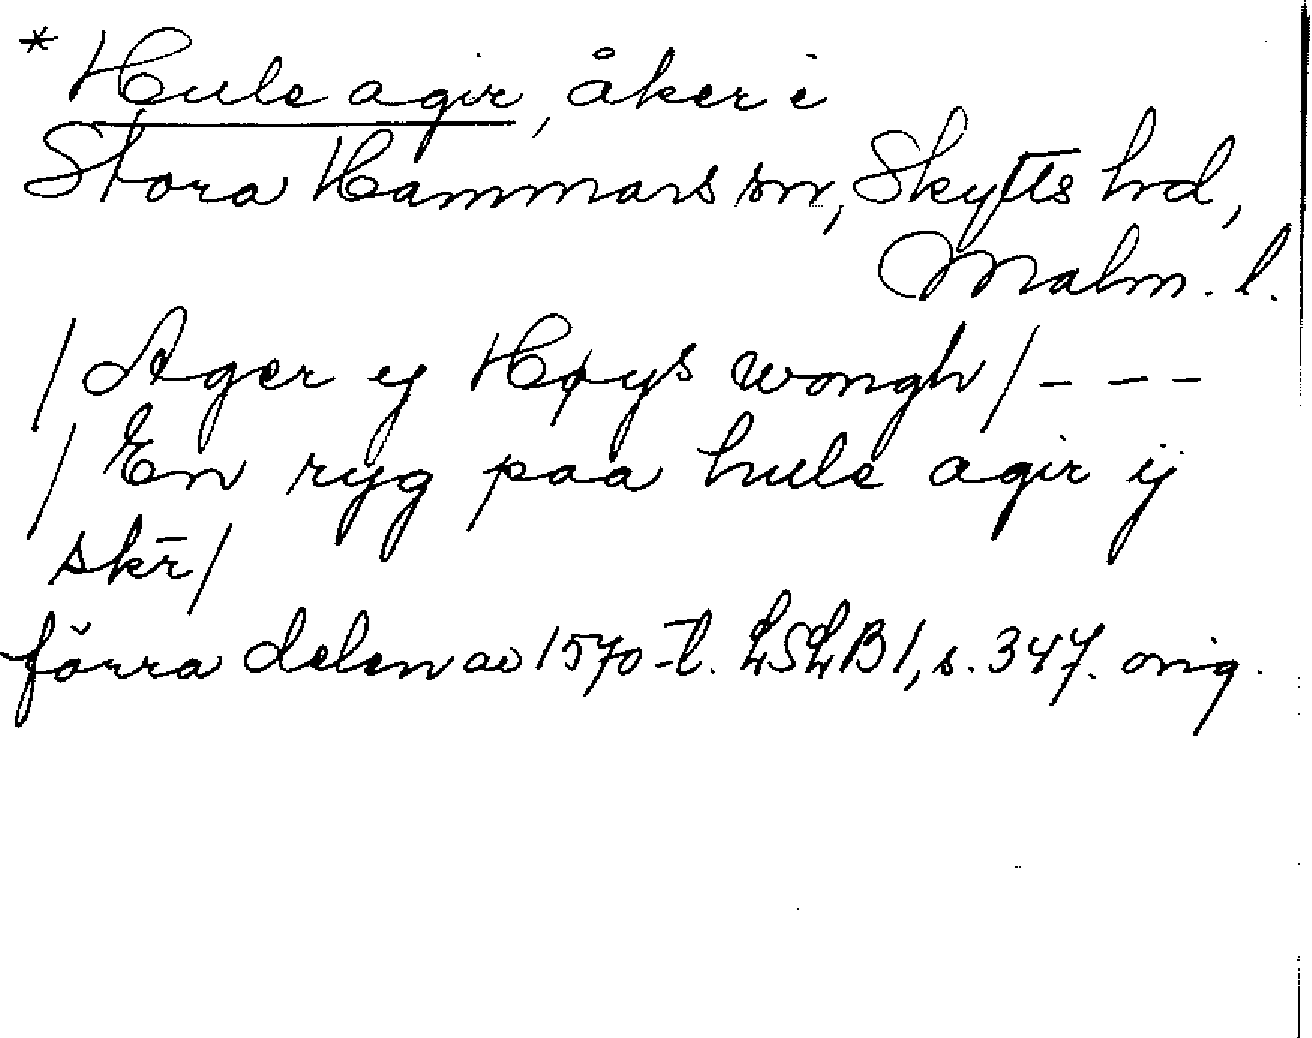 * Hule agir, åker i
Stora Hammars sn, Skytts hd,
Malm. l.
/Ager ij Høys wongh/ - - -
/En ryg paa hule agir ij
skr̄/
förra delen av 1570-t. LSLB 1, s. 347. orig.